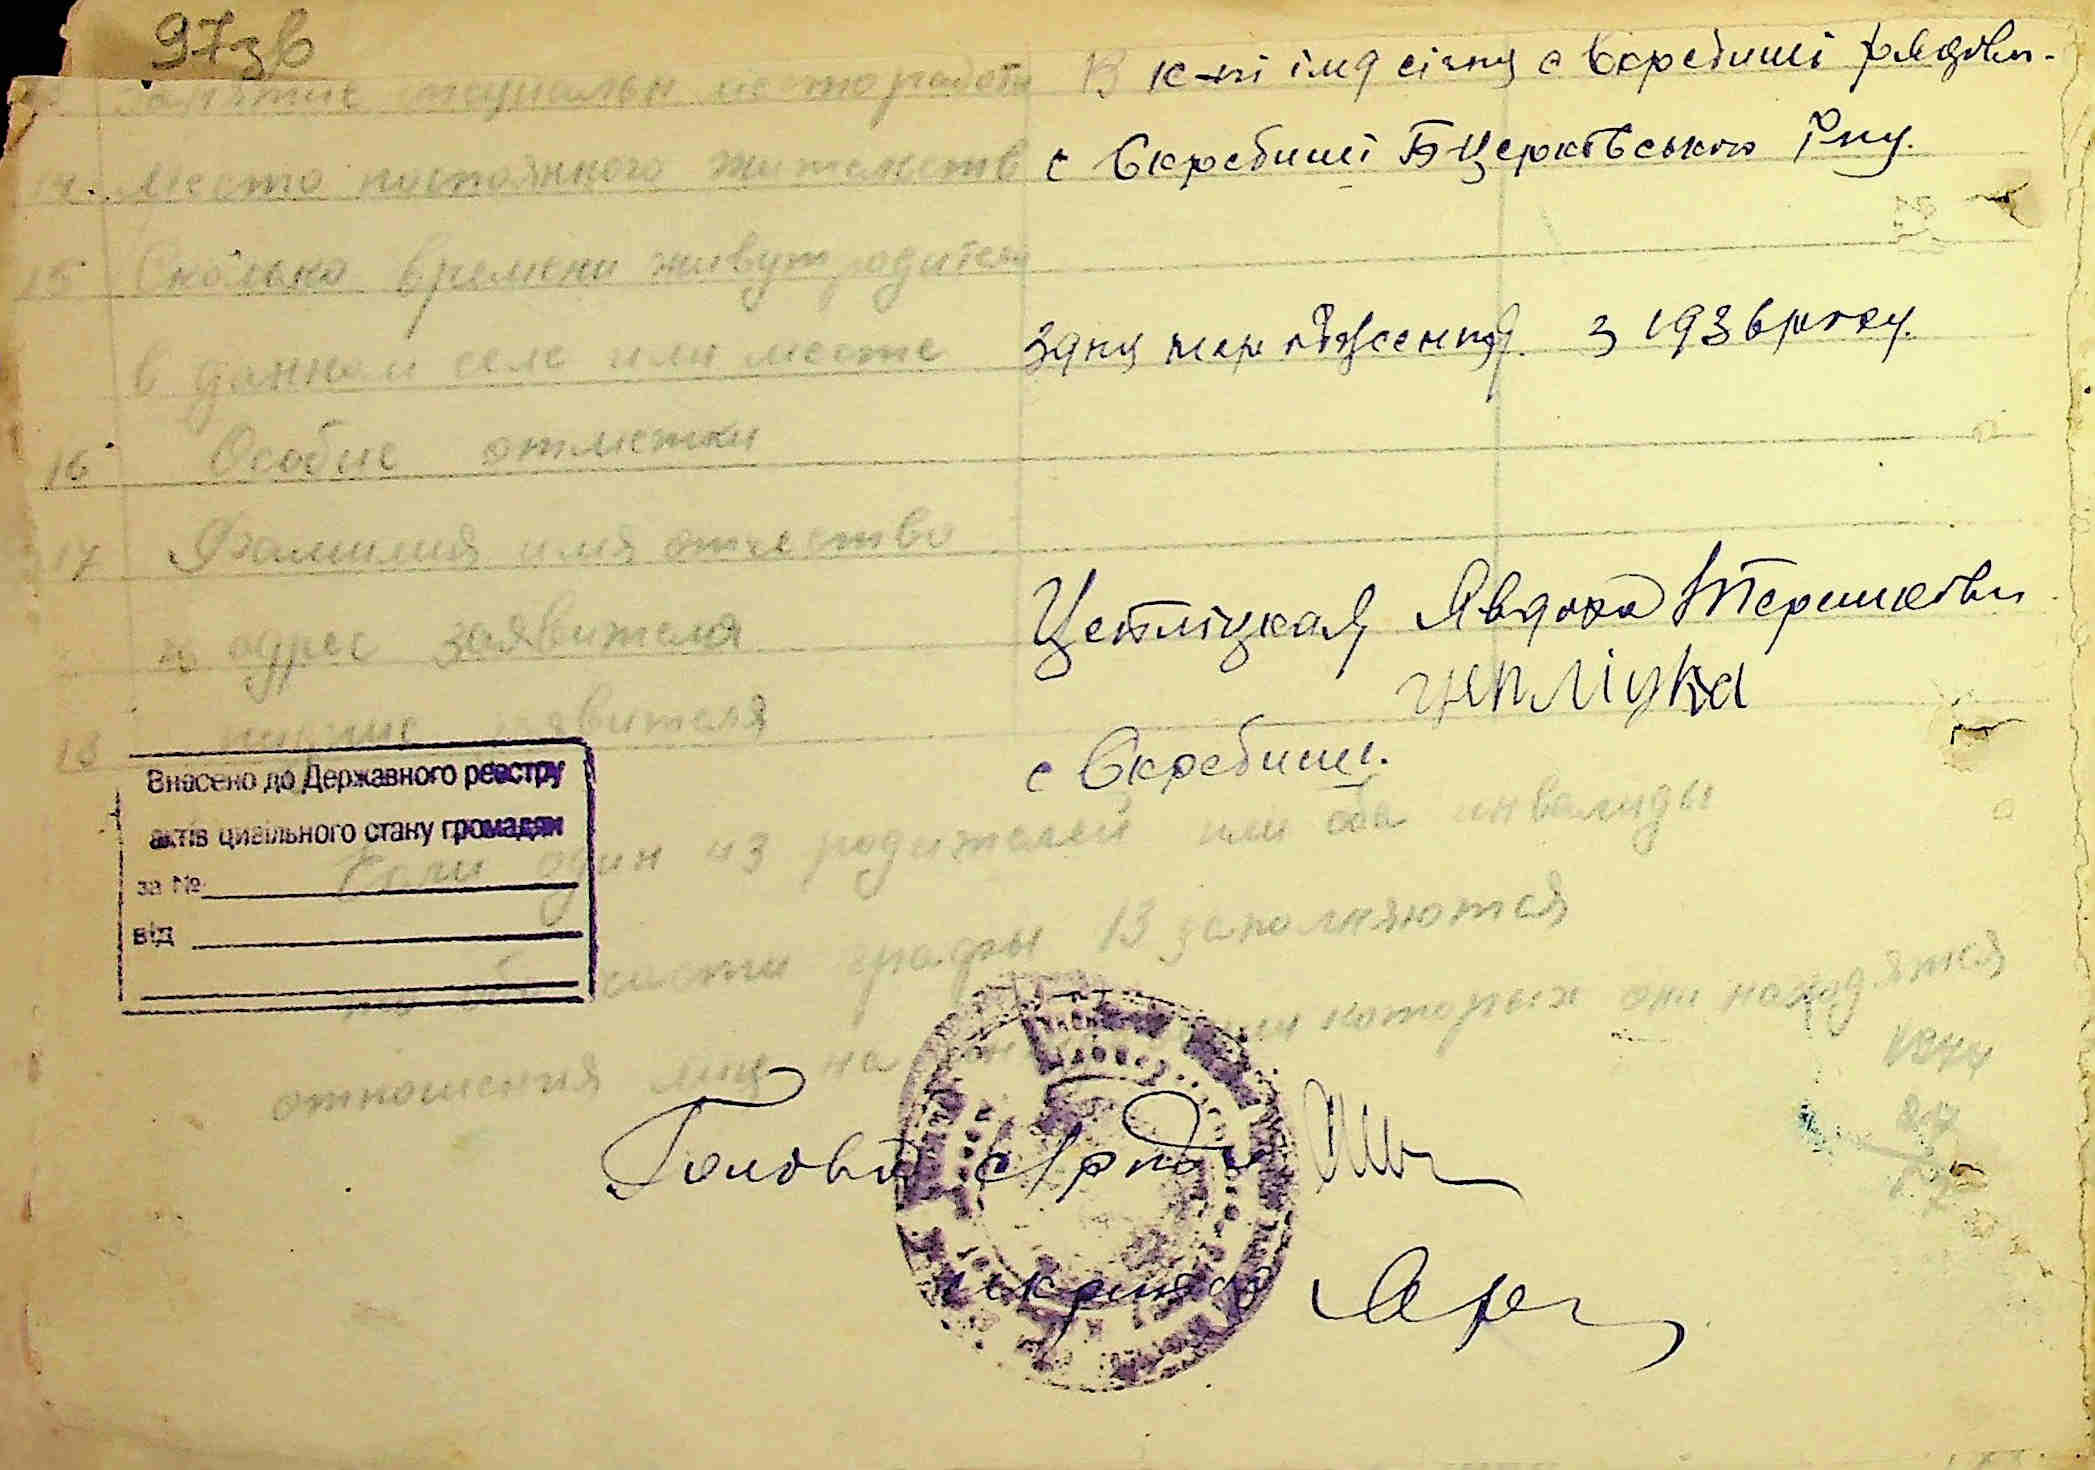 97зв
В к-пі ім 9 січня с Скребиші рядови.
14. Место постоянного жительств с Скребиші БЦерковського Рну.
15 Сколько времени живут родители
в данном селе или месте з дня народження. з 1936 року.
16 Особые отметки
17 Фамилия имя отчество
и адрес заявителя Цепліцкая Явдоха Терешковн
цепліцка
18 заявителя
с Скребиші.
Внесено до Державного реєстру
актів цивільного стану громадян
за №
від
Если один из родителей или оба инвалиды
то обе части графы 13 заполняются
отношения лиц на которых они находятся
1944
Голова с/ради
секретар